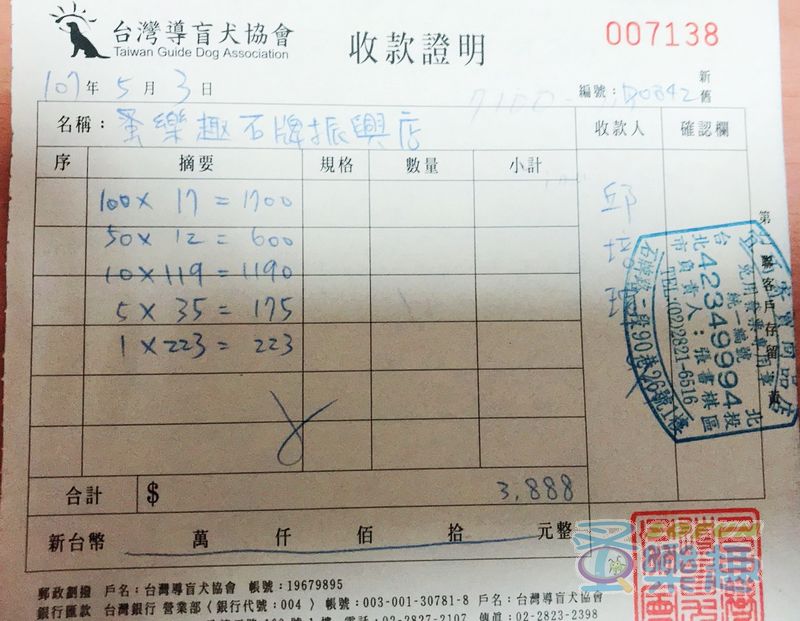 台灣導盲犬協會
Taiwan Guide Dog Association
收款證明
007138
107年 5月 3日
編號：D0842 新 舊
名稱：蚤樂趣石牌振興店
收款人
確認欄
序 摘要 規格 數量 小計
100 × 17 = 1700
50 × 12 = 600
10 × 119 = 1190
5 × 35 = 175
1 × 223 = 223
邱
合計 $ 3,888
新台幣 萬 仟 佰 拾 元整
客戶存留
免用發票專用章
統一編號
42349994
負責人：張書棋
TEL:(02)2821-6516
台北市北投區
石牌路一段90巷26號1樓
郵政劃撥 戶名：台灣導盲犬協會 帳號：19679895
銀行匯款 台灣銀行 營業部〈銀行代號：004〉 帳號：003-001-30781-8 戶名：台灣導盲犬協會
電話：02-2827-2107 傳真：02-2823-2398